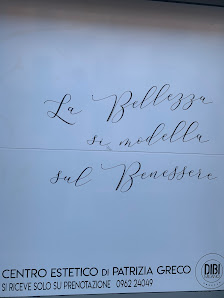 La Bellezza
si modella
sul Benessere
CENTRO ESTETICO DI PATRIZIA GRECO
SI RICEVE SOLO SU PRENOTAZIONE 0962 24049
DIBI